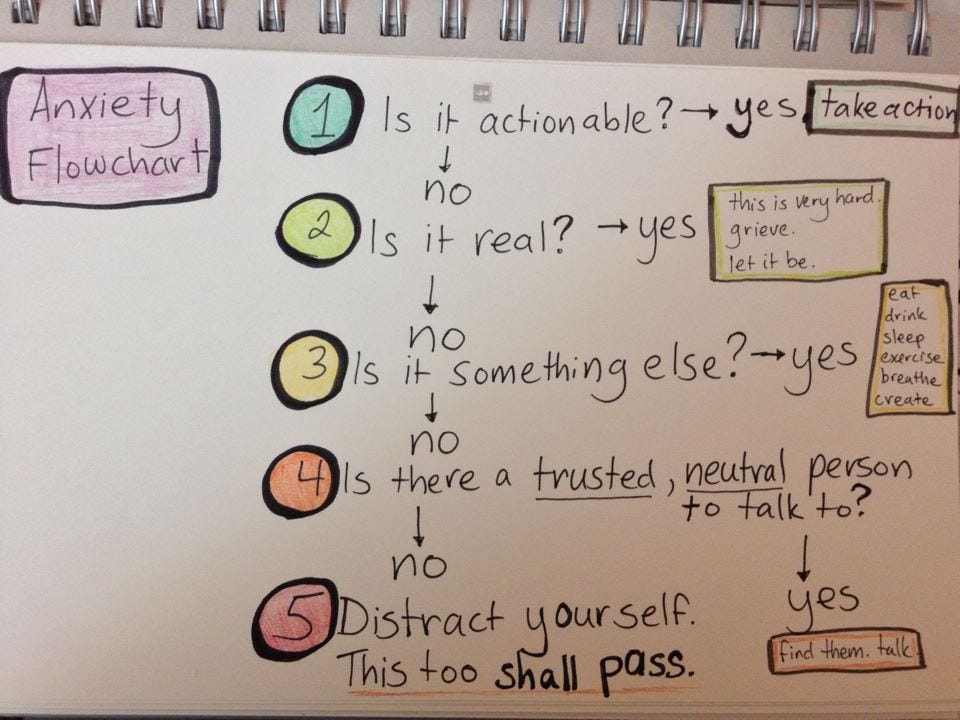 Anxiety
Flowchart
1 Is it actionable? → yes take action
↓
no
2 Is it real? → yes
this is very hard.
grieve.
let it be.
↓
no
3 Is it something else? → yes
eat
drink
sleep
exercise
breathe
create
↓
no
4 Is there a trusted, neutral person
to talk to?
↓
yes
find them. talk.
↓
no
5 Distract yourself.
This too shall pass.